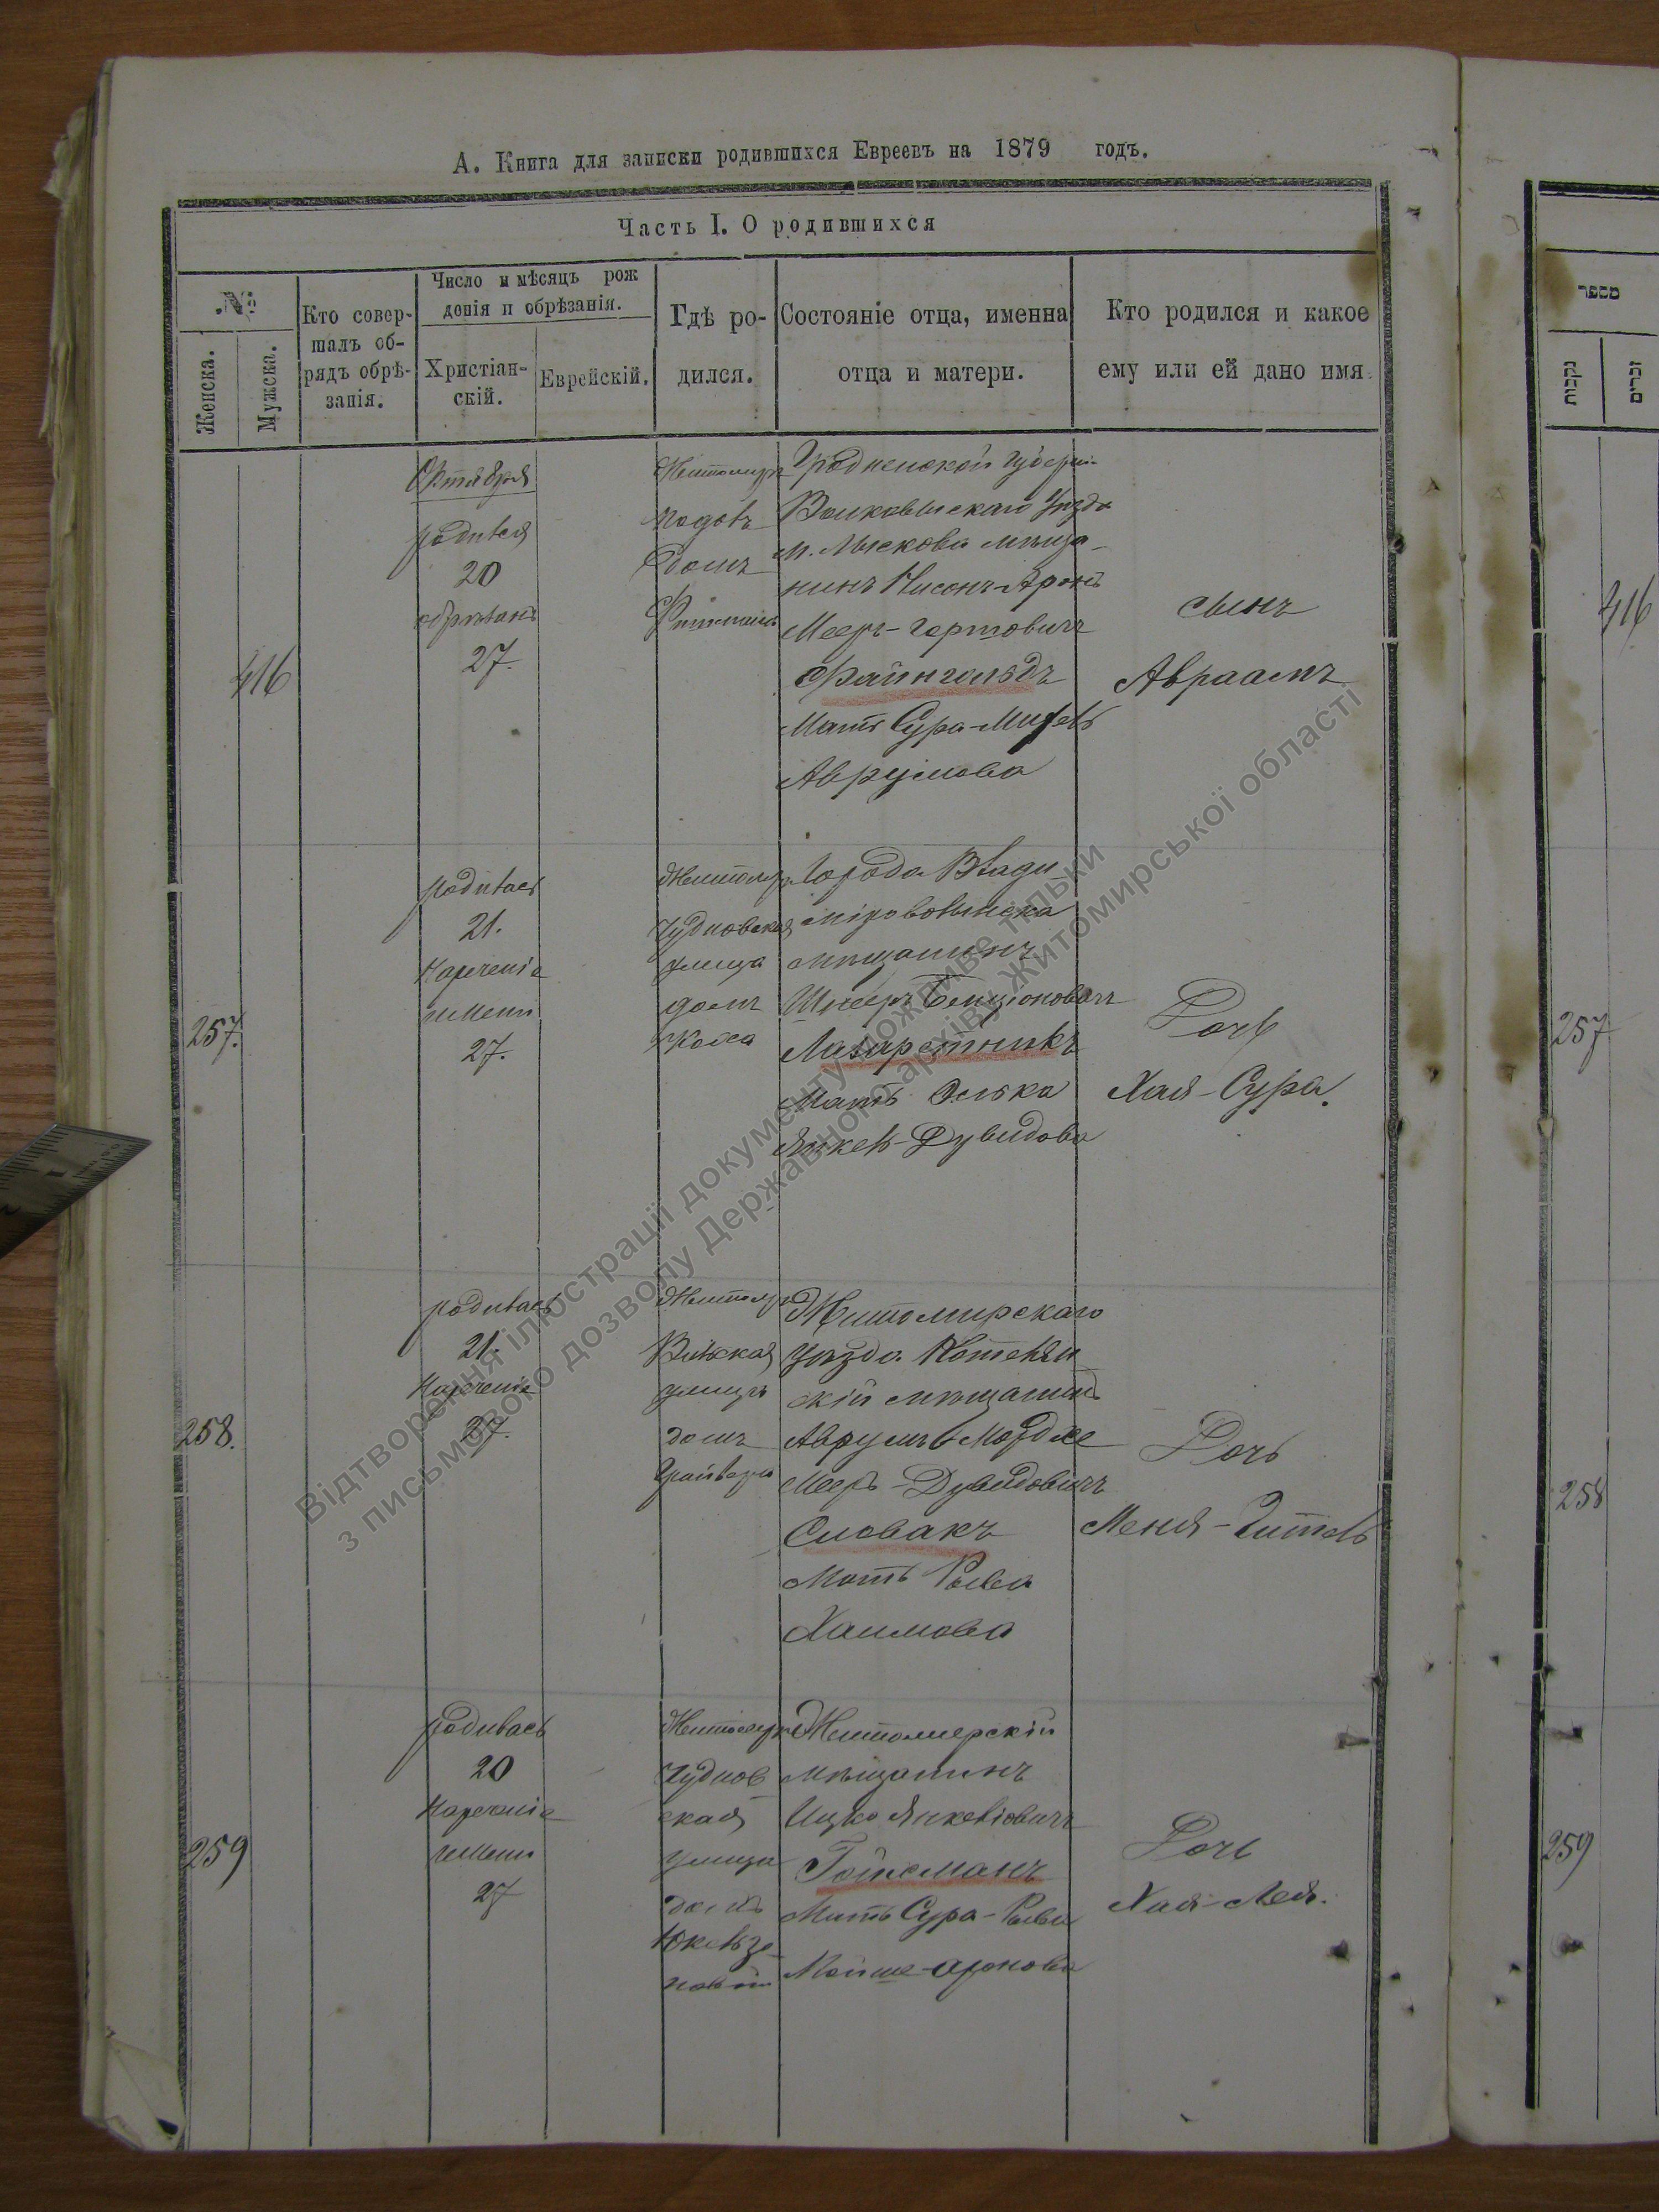 А. Книга для записки родившихся Евреевъ на 1879 годъ.
Часть I. О родившихся
№
Женска.
Мужска.
Кто совер-
шалъ об-
рядъ обрѣ-
занія.
Число и мѣсяцъ рож
денія и обрѣзанія.
Христіан-
скій.
Еврейскій.
Гдѣ ро-
дился.
Состояніе отца, именна
отца и матери.
Кто родился и какое
ему или ей дано имя.
מספר
נקבות
זכרים
416
Октября
родился
20
обрѣзанъ
27.
Житомиръ
домъ
Гродненской губерніи
Волковыскаго Уѣзда
м. Лыскова мѣща-
нинъ Нисонъ-Аронъ
Мееръ-Гершовичъ
Файнгольдъ
Мать Сура-Михель
Аврумова
сынъ
Авраамъ
416
257.
родилась
21.
Нареченіе
имени
27.
Житомиръ
Чудновская
улица
домъ
Города Влади-
міроволынска
мѣщанинъ
Шнееръ Бенціоновичъ
Лазаретникъ
Мать Элька
Янкель-Дувидова
Дочь
Хая-Сура.
257
258.
родилась
21.
Нареченіе
27.
Житомиръ
Вильская
улица
домъ
Житомирскаго
уѣзда Котельян
скій мѣщанинъ
Аврумъ Мордке
Мееръ-Дувидовичъ
Словакъ
Мать Рывка
Хаимова
Дочь
Меня-Гитель
258
259
родилась
20
Нареченіе
имени
27
Житомиръ
Чуднов
ская
улица
домъ
Житомирскій
мѣщанинъ
Ицко Янкеліовичъ
Гойхманъ
Мать Сура-Рывка
Мойше-Аронова
Дочь
Хая-Лея.
259
Відтворення ілюстрації документу можливе тільки
з письмового дозволу Державного архіву Житомирської області